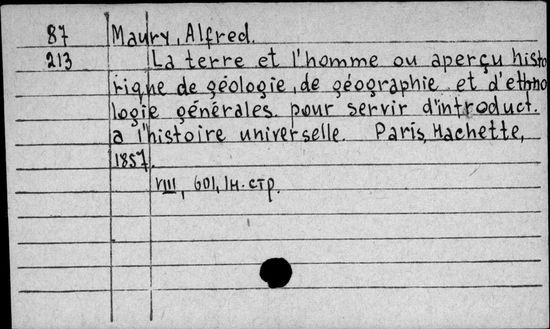 87 Maury, Alfred.
213 La terre et l'homme ou aperçu histo
rique de géologie, de géographie et d'ethno
logie générales pour servir d'introduct.
a l'histoire universelle. Paris, Hachette,
1857.
VIII, 601, 1н. стр.